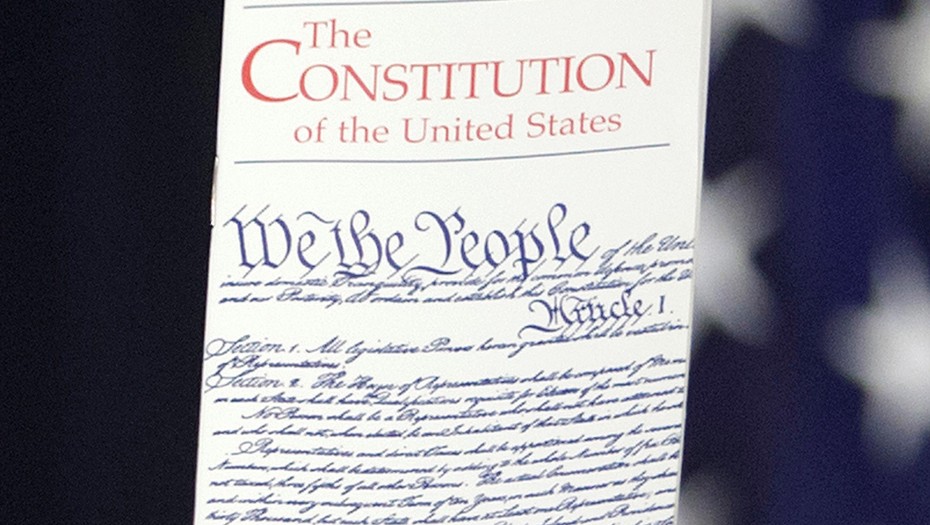 The
CONSTITUTION
of the United States
We the People of the Uni
insure domestic Tranquility, provide for the common defence, promo
and our Posterity, do ordain and establish this Constitution for the U
Article I.
Section 1. All legislative Powers herein granted shall be vested in
of Representatives.
Section 2. The House of Representatives shall be composed of Mem
in each State shall have Qualifications requisite for Electors of the most numerou
No Person shall be a Representative who shall not have attained to
and who shall not, when elected, be an Inhabitant of that State in which he
Representatives and direct Taxes shall be apportioned among the several
Numbers, which shall be determined by adding to the whole Number of free
not taxed, three fifths of all other Persons. The actual Enumeration shall be
and within every subsequent Term of ten Years, in such Manner as they shall
thirty Thousand, but each State shall have at Least one Representative; and